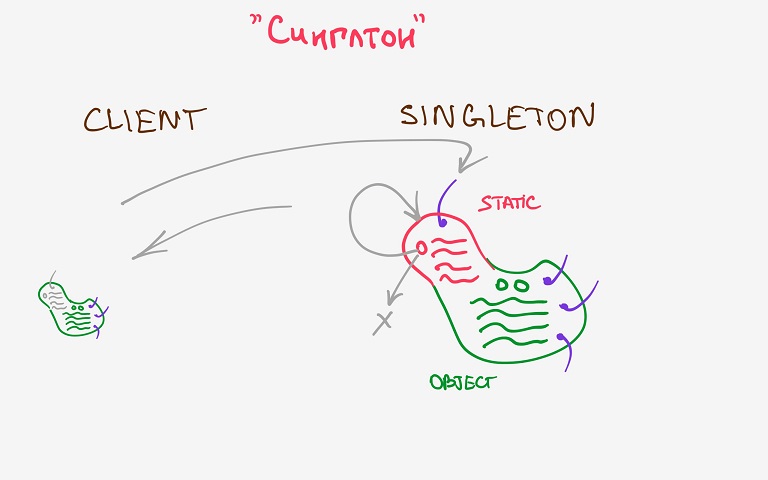 "Синглтон"
CLIENT
SINGLETON
STATIC
X
OBJECT